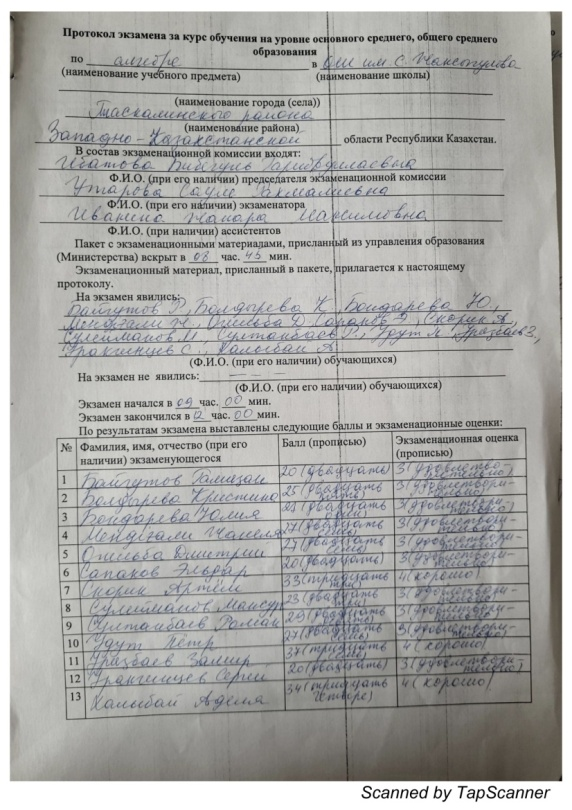 Протокол экзамена за курс обучения на уровне основного среднего, общего среднего
образования
по алгебре в ОШ им С. Жаксыгулова
(наименование учебного предмета) (наименование школы)
(наименование города (села))
Таскалинского района
(наименование района)
Западно-Казахстанской области Республики Казахстан.
В состав экзаменационной комиссии входят:
Ф.И.О. (при его наличии) председателя экзаменационной комиссии
Утарова Сауле
Ф.И.О. (при его наличии) экзаменатора
Жанара Максимовна
Ф.И.О. (при наличии) ассистентов
Пакет с экзаменационными материалами, присланный из управления образования
(Министерства) вскрыт в 08 час. 45 мин.
Экзаменационный материал, присланный в пакете, прилагается к настоящему
протоколу.
На экзамен явились:
Байгутов Р., Болдырева К., Бондарева Ю.,
Мендгали Ж., Д., Сапаков Э., Скорик А.,
Сулейманов М., Султанбаев Р., Удут П., Уразбаев З.,
С., Халыбай А.
(Ф.И.О. (при его наличии) обучающихся)
На экзамен не явились:
(Ф.И.О. (при его наличии) обучающихся)
Экзамен начался в 09 час. 00 мин.
Экзамен закончился в 12 час. 00 мин.
По результатам экзамена выставлены следующие баллы и экзаменационные оценки:
№ Фамилия, имя, отчество (при его наличии) экзаменующегося Балл (прописью) Экзаменационная оценка (прописью)
1 Байгутов Рамазан 20 (двадцать) 3 (удовлетворительно)
2 Болдырева Кристина 25 (двадцать пять) 3 (удовлетворительно)
3 Бондарева Юлия (двадцать 3 (удовлетворительно)
4 Мендгали 27 (двадцать семь) 3 (удовлетворительно)
5 Дмитрий 27 (двадцать семь) 3 (удовлетворительно)
6 Сапаков Эльдар 20 (двадцать) 3 (удовлетворительно)
7 Скорик Артём 33 (тридцать три) 4 (хорошо)
8 Сулейманов Мансур 23 (двадцать три) 3 (удовлетворительно)
9 Султанбаев Раман (двадцать 3 (удовлетворительно)
10 Удут Пётр 27 (двадцать семь) 3 (удовлетворительно)
11 Уразбаев (тридцать 4 (хорошо)
12 Сергей 20 (двадцать) 3 (удовлетворительно)
13 Халыбай Аделя 34 (тридцать четыре) 4 (хорошо)
Scanned by TapScanner